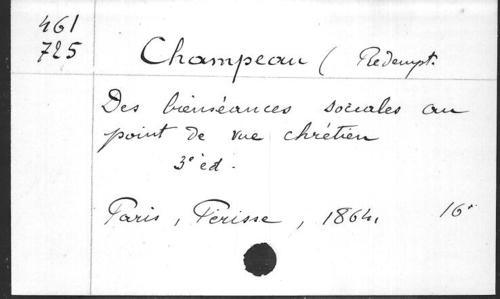 461
725
Champeau ( Rédempt.
Des bienséances sociales au
point de vue chrétien
3e éd.
Paris, Périsse, 1864. 16°